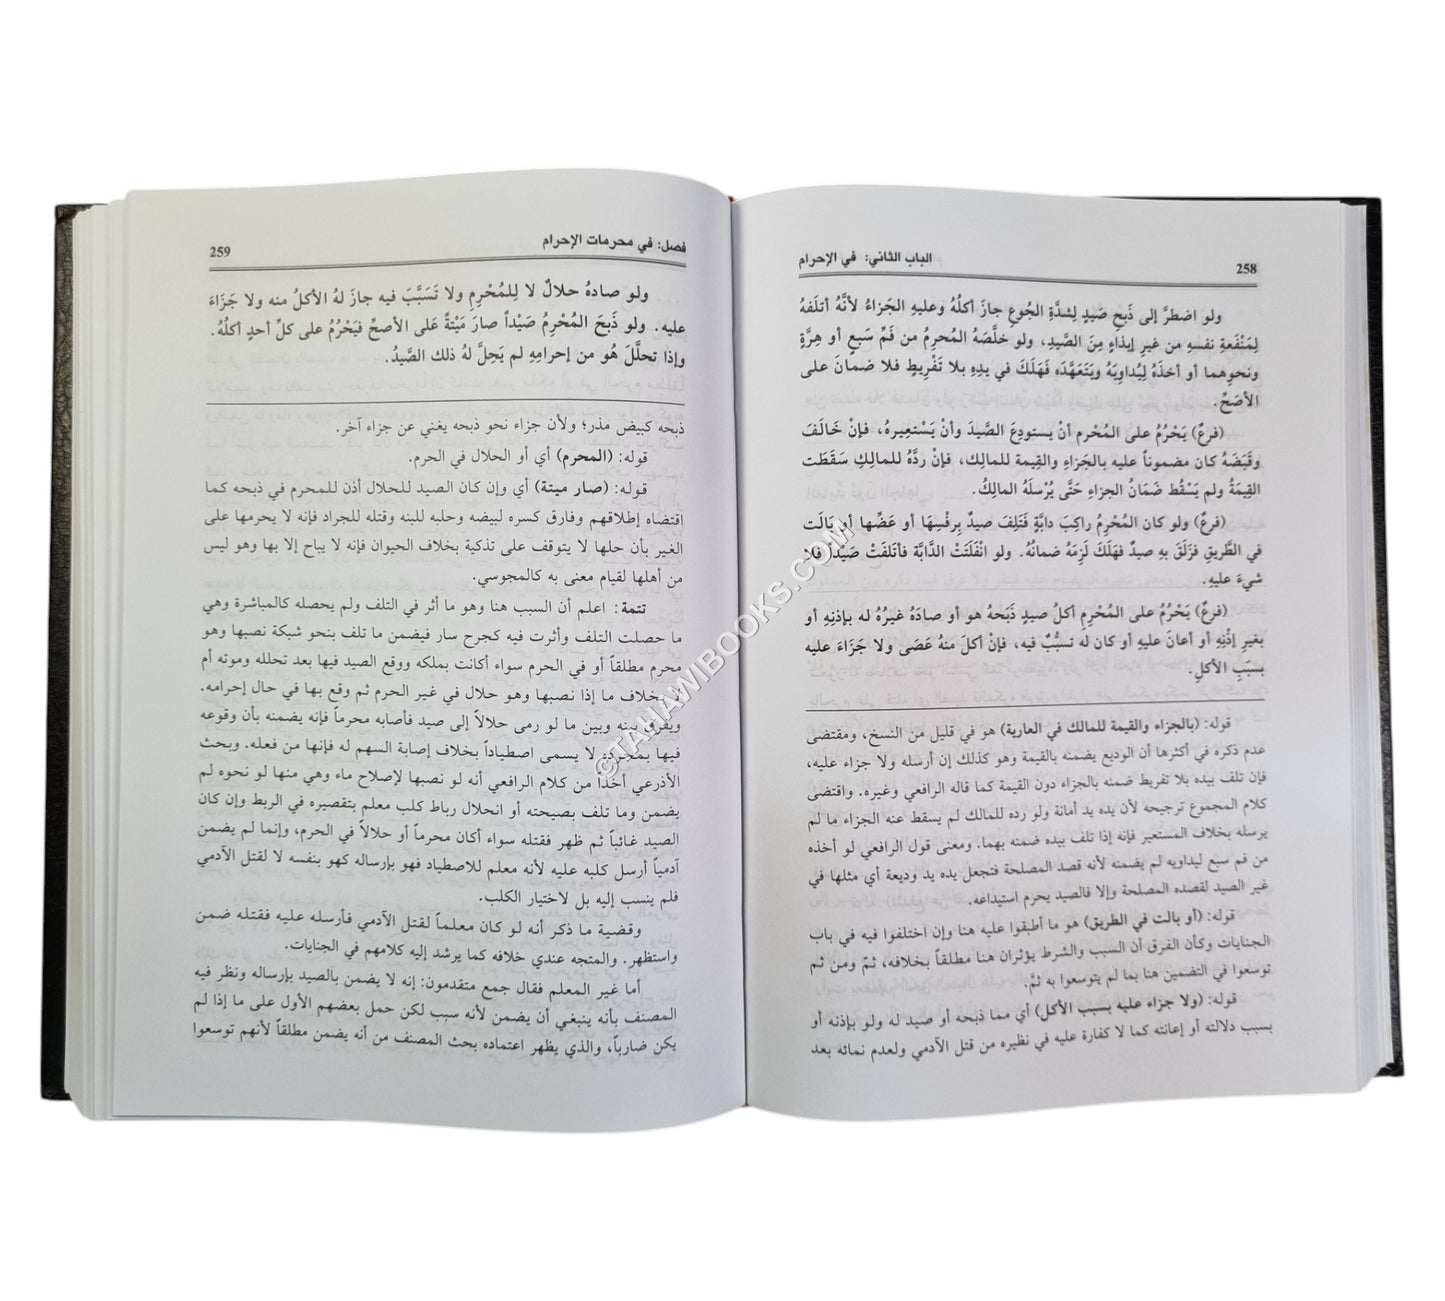 258
الباب الثاني: في الإحرام
ولو اضطرَّ إلى ذَبحِ صَيدٍ لِشدَّةِ الجُوعِ جازَ أكلُهُ وعليهِ الجَزاءُ لأنَّهُ أتلَفهُ
لِمَنْفَعةِ نفسهِ من غيرِ إيذاءٍ مِنَ الصَّيدِ، ولو خلَّصَهُ المُحرِمُ من فَمِّ سَبعٍ أو هِرَّةٍ
ونحوِهما أو أخذَهُ لِيُداوِيَهُ ويَتَعَهَّدَه فَهَلَكَ في يدِهِ بلا تَفْريطٍ فلا ضمانَ على
الأصَحِّ.
(فرعٌ) يَحْرُمُ على المُحْرِمِ أنْ يستودِعَ الصَّيدَ وأنْ يَسْتَعِيرهُ، فإنْ خَالَفَ
وقَبَضَهُ كان مضموناً عليه بالجَزاءِ والقِيمة للمالِك، فإنْ ردَّهُ للمالِكِ سَقَطَت
القِيمَةُ ولم يَسْقُط ضَمَانُ الجزاءِ حَتَّى يُرْسلَهُ المالِكُ.
(فرعٌ) ولو كان المُحْرِمُ راكِبَ دابَّةٍ فَتَلِفَ صيدٌ بِرفْسِهَا أو عَضِّها أو بَالَت
في الطَّريقِ فزَلَقَ بهِ صيدٌ فهَلَكَ لَزِمَهُ ضمانُهُ. ولو انْفَلَتَتْ الدَّابَّة فأتلَفَتْ صَيْداً فلا
شيءَ عليهِ.
(فرعٌ) يَحْرُمُ على المُحْرِمِ أكلُ صيدٍ ذَبَحَهُ هو أو صادَهُ غيرُهُ له بإذنِهِ أو
بغيرِ إذْنِهِ أو أعانَ عليهِ أو كان له تسبُّبٌ فيه، فإنْ أكلَ منهُ عَصَى ولا جَزَاءَ عليه
بسبَبِ الأكلِ.
قوله: (بالجزاء والقيمة للمالك في العارية) هو في قليل من النسخ، ومقتضى
عدم ذكره في أكثرها أن الوديع يضمنه بالقيمة وهو كذلك إن أرسله ولا جزاء عليه،
فإن تلف بيده بلا تفريط ضمنه بالجزاء دون القيمة كما قاله الرافعي وغيره. واقتضى
كلام المجموع ترجيحه لأن يده يد أمانة ولو رده للمالك لم يسقط عنه الجزاء ما لم
يرسله بخلاف المستعير فإنه إذا تلف بيده ضمنه بهما. ومعنى قول الرافعي لو أخذه
من فم سبع ليداويه لم يضمنه لأنه قصد المصلحة فتجعل يده يد وديعة أي مثلها في
غير الصيد لقصده المصلحة وإلا فالصيد يحرم استيداعه.
قوله: (أو بالت في الطريق) هو ما أطبقوا عليه هنا وإن اختلفوا فيه في باب
الجنايات وكأن الفرق أن السبب والشرط يؤثران هنا مطلقاً بخلافه، ثمّ ومن ثم
توسعوا في التضمين هنا بما لم يتوسعوا به ثمَّ.
قوله: (ولا جزاء عليه بسبب الأكل) أي مما ذبحه أو صيد له ولو بإذنه أو
بسبب دلالته أو إعانته كما لا كفارة عليه في نظيره من قتل الآدمي ولعدم نمائه بعد
فصل: في محرمات الإحرام
259
ولو صادهُ حلالٌ لا لِلمُحْرِمِ ولا تَسَبَّبَ فيه جازَ لهُ الأكلُ منه ولا جَزَاءَ
عليه. ولو ذَبحَ المُحْرِمُ صَيْداً صارَ مَيْتةً عَلى الأصحِّ فيَحْرُمُ على كلِّ أحدٍ أكلُهُ.
وإذا تحلَّلَ هُو من إحرامِهِ لم يَحِلَّ لهُ ذلك الصَّيدُ.
ذبحه كبيض مذر؛ ولأن جزاء نحو ذبحه يغني عن جزاء آخر.
قوله: (المحرم) أي أو الحلال في الحرم.
قوله: (صار ميتة) أي وإن كان الصيد للحلال أذن للمحرم في ذبحه كما
اقتضاه إطلاقهم وفارق كسره لبيضه وحلبه للبنه وقتله للجراد فإنه لا يحرمها على
الغير بأن حلها لا يتوقف على تذكية بخلاف الحيوان فإنه لا يباح إلا بها وهو ليس
من أهلها لقيام معنى به كالمجوسي.
تتمة: اعلم أن السبب هنا وهو ما أثر في التلف ولم يحصله كالمباشرة وهي
ما حصلت التلف وأثرت فيه كجرح سار فيضمن ما تلف بنحو شبكة نصبها وهو
محرم مطلقاً أو في الحرم سواء أكانت بملكه ووقع الصيد فيها بعد تحلله وموته أم
لا بخلاف ما إذا نصبها وهو حلال في غير الحرم ثم وقع بها في حال إحرامه.
ويفرق بينه وبين ما لو رمى حلالاً إلى صيد فأصابه محرماً فإنه يضمنه بأن وقوعه
فيها بمجرده لا يسمى اصطياداً بخلاف إصابة السهم له فإنها من فعله. وبحث
الأذرعي أخذاً من كلام الرافعي أنه لو نصبها لإصلاح ماء وهي منها لو نحوه لم
يضمن وما تلف بصيحته أو انحلال رباط كلب معلم بتقصيره في الربط وإن كان
الصيد غائباً ثم ظهر فقتله سواء أكان محرماً أو حلالاً في الحرم، وإنما لم يضمن
آدمياً أرسل كلبه عليه لأنه معلم للاصطياد فهو بإرساله كهو بنفسه لا لقتل الآدمي
فلم ينسب إليه بل لاختيار الكلب.
وقضية ما ذكر أنه لو كان معلماً لقتل الآدمي فأرسله عليه فقتله ضمن
واستظهر. والمتجه عندي خلافه كما يرشد إليه كلامهم في الجنايات.
أما غير المعلم فقال جمع متقدمون: إنه لا يضمن بالصيد بإرساله ونظر فيه
المصنف بأنه ينبغي أن يضمن لأنه سبب لكن حمل بعضهم الأول على ما إذا لم
يكن ضارباً، والذي يظهر اعتماده بحث المصنف من أنه يضمن مطلقاً لأنهم توسعوا
©TAHAWIBOOKS.COM